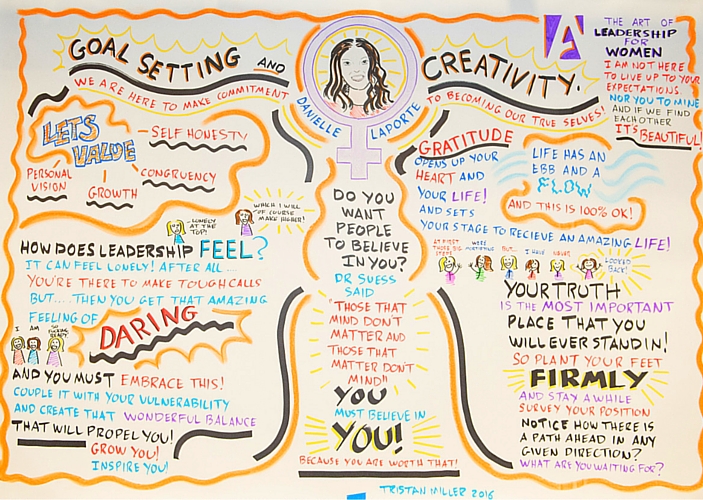 GOAL SETTING AND
CREATIVITY.
WE ARE HERE TO MAKE COMMITMENT
TO BECOMING OUR TRUE SELVES!
DANIELLE
LAPORTE
A
THE ART OF
LEADERSHIP
FOR
WOMEN
I AM NOT HERE
TO LIVE UP TO YOUR
EXPECTATIONS
NOR YOU TO MINE
AND IF WE FIND
EACHOTHER
IT'S BEAUTIFUL!
LETS
VALUE
SELF HONESTY
PERSONAL
VISION
GROWTH
CONGRUENCY
LONELY
AT THE
TOP!
WHICH I WILL
OF COURSE
MAKE HIGHER!
HOW DOES LEADERSHIP FEEL?
IT CAN FEEL LONELY! AFTER ALL....
YOU'RE THERE TO MAKE TOUGH CALLS
BUT....THEN YOU GET THAT AMAZING
FEELING OF
DARING
I AM SO
FUCKING
READY
AND YOU MUST EMBRACE THIS!
COUPLE IT WITH YOUR VULNERABILITY
AND CREATE THAT WONDERFUL BALANCE
THAT WILL PROPEL YOU!
GROW YOU!
INSPIRE YOU!
DO YOU
WANT
PEOPLE
TO BELIEVE
IN YOU?
DR SUESS
SAID
"THOSE THAT
MIND DON'T
MATTER AND
THOSE THAT
MATTER DON'T
MIND!"
YOU
MUST BELIEVE IN
YOU!
BECAUSE YOU ARE WORTH THAT!
GRATITUDE
OPENS UP YOUR
HEART AND
YOUR LIFE!
AND SETS
YOUR STAGE TO RECIEVE AN AMAZING LIFE!
LIFE HAS AN
EBB AND A
FLOW
AND THIS IS 100% OK!
AT FIRST
THOSE BIG
STEPS
WERE
MORTIFYING
BUT...
I HAVE
NEVER
LOOKED
BACK!
YOUR TRUTH
IS THE MOST IMPORTANT
PLACE THAT YOU
WILL EVER STAND IN!
SO PLANT YOUR FEET
FIRMLY
AND STAY A WHILE
SURVEY YOUR POSITION
NOTICE HOW THERE IS
A PATH AHEAD IN ANY
GIVEN DIRECTION?
WHAT ARE YOU WAITING FOR?
TRISTAN MILLER 2016